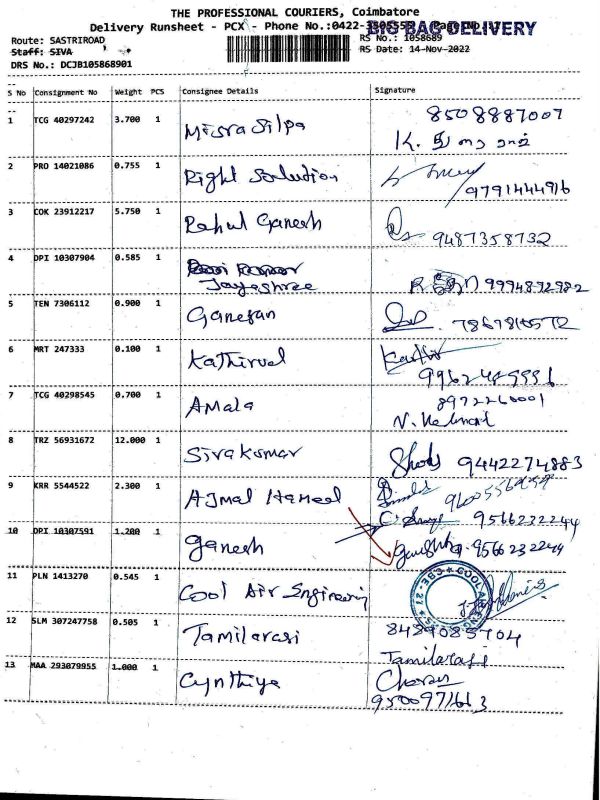 THE PROFESSIONAL COURIERS, Coimbatore
Delivery Runsheet - PCX - Phone No.:0422-
BIG BAG DELIVERY
Route: SASTRIROAD
RS No.: 1058689
Staff: SIVA
RS Date: 14-Nov-2022
DRS No.: DCJB105868901
S No Consignment No Weight PCS Consignee Details Signature
1 TCG 40297242 3.700 1 Misra Silpa 8508887007
K.
2 PRO 14021086 0.755 1 Right Solution 9791444916
3 COK 23912217 5.750 1 Rahul Ganesh 9487358732
4 DPI 10307904 0.585 1 Jayashree 9994892982
5 TEN 7306112 0.900 1 Ganesan
6 MRT 247333 0.100 1 Kathirvel
7 TCG 40298545 0.700 1 Amala
8 TRZ 56931672 12.000 1 Sivakumar 9442274883
9 KRR 5544522 2.300 1 Ajmal Hameed
9566232244
10 DPI 10307591 1.200 1 Ganesh 9566232244
11 PLN 1413270 0.545 1 Cool Air Engineering
12 SLM 307247758 0.505 1 Tamilarasi 8489085704
Tamilarasi
13 MAA 293079955 1.000 1 Cynthiya Charan
9500971663